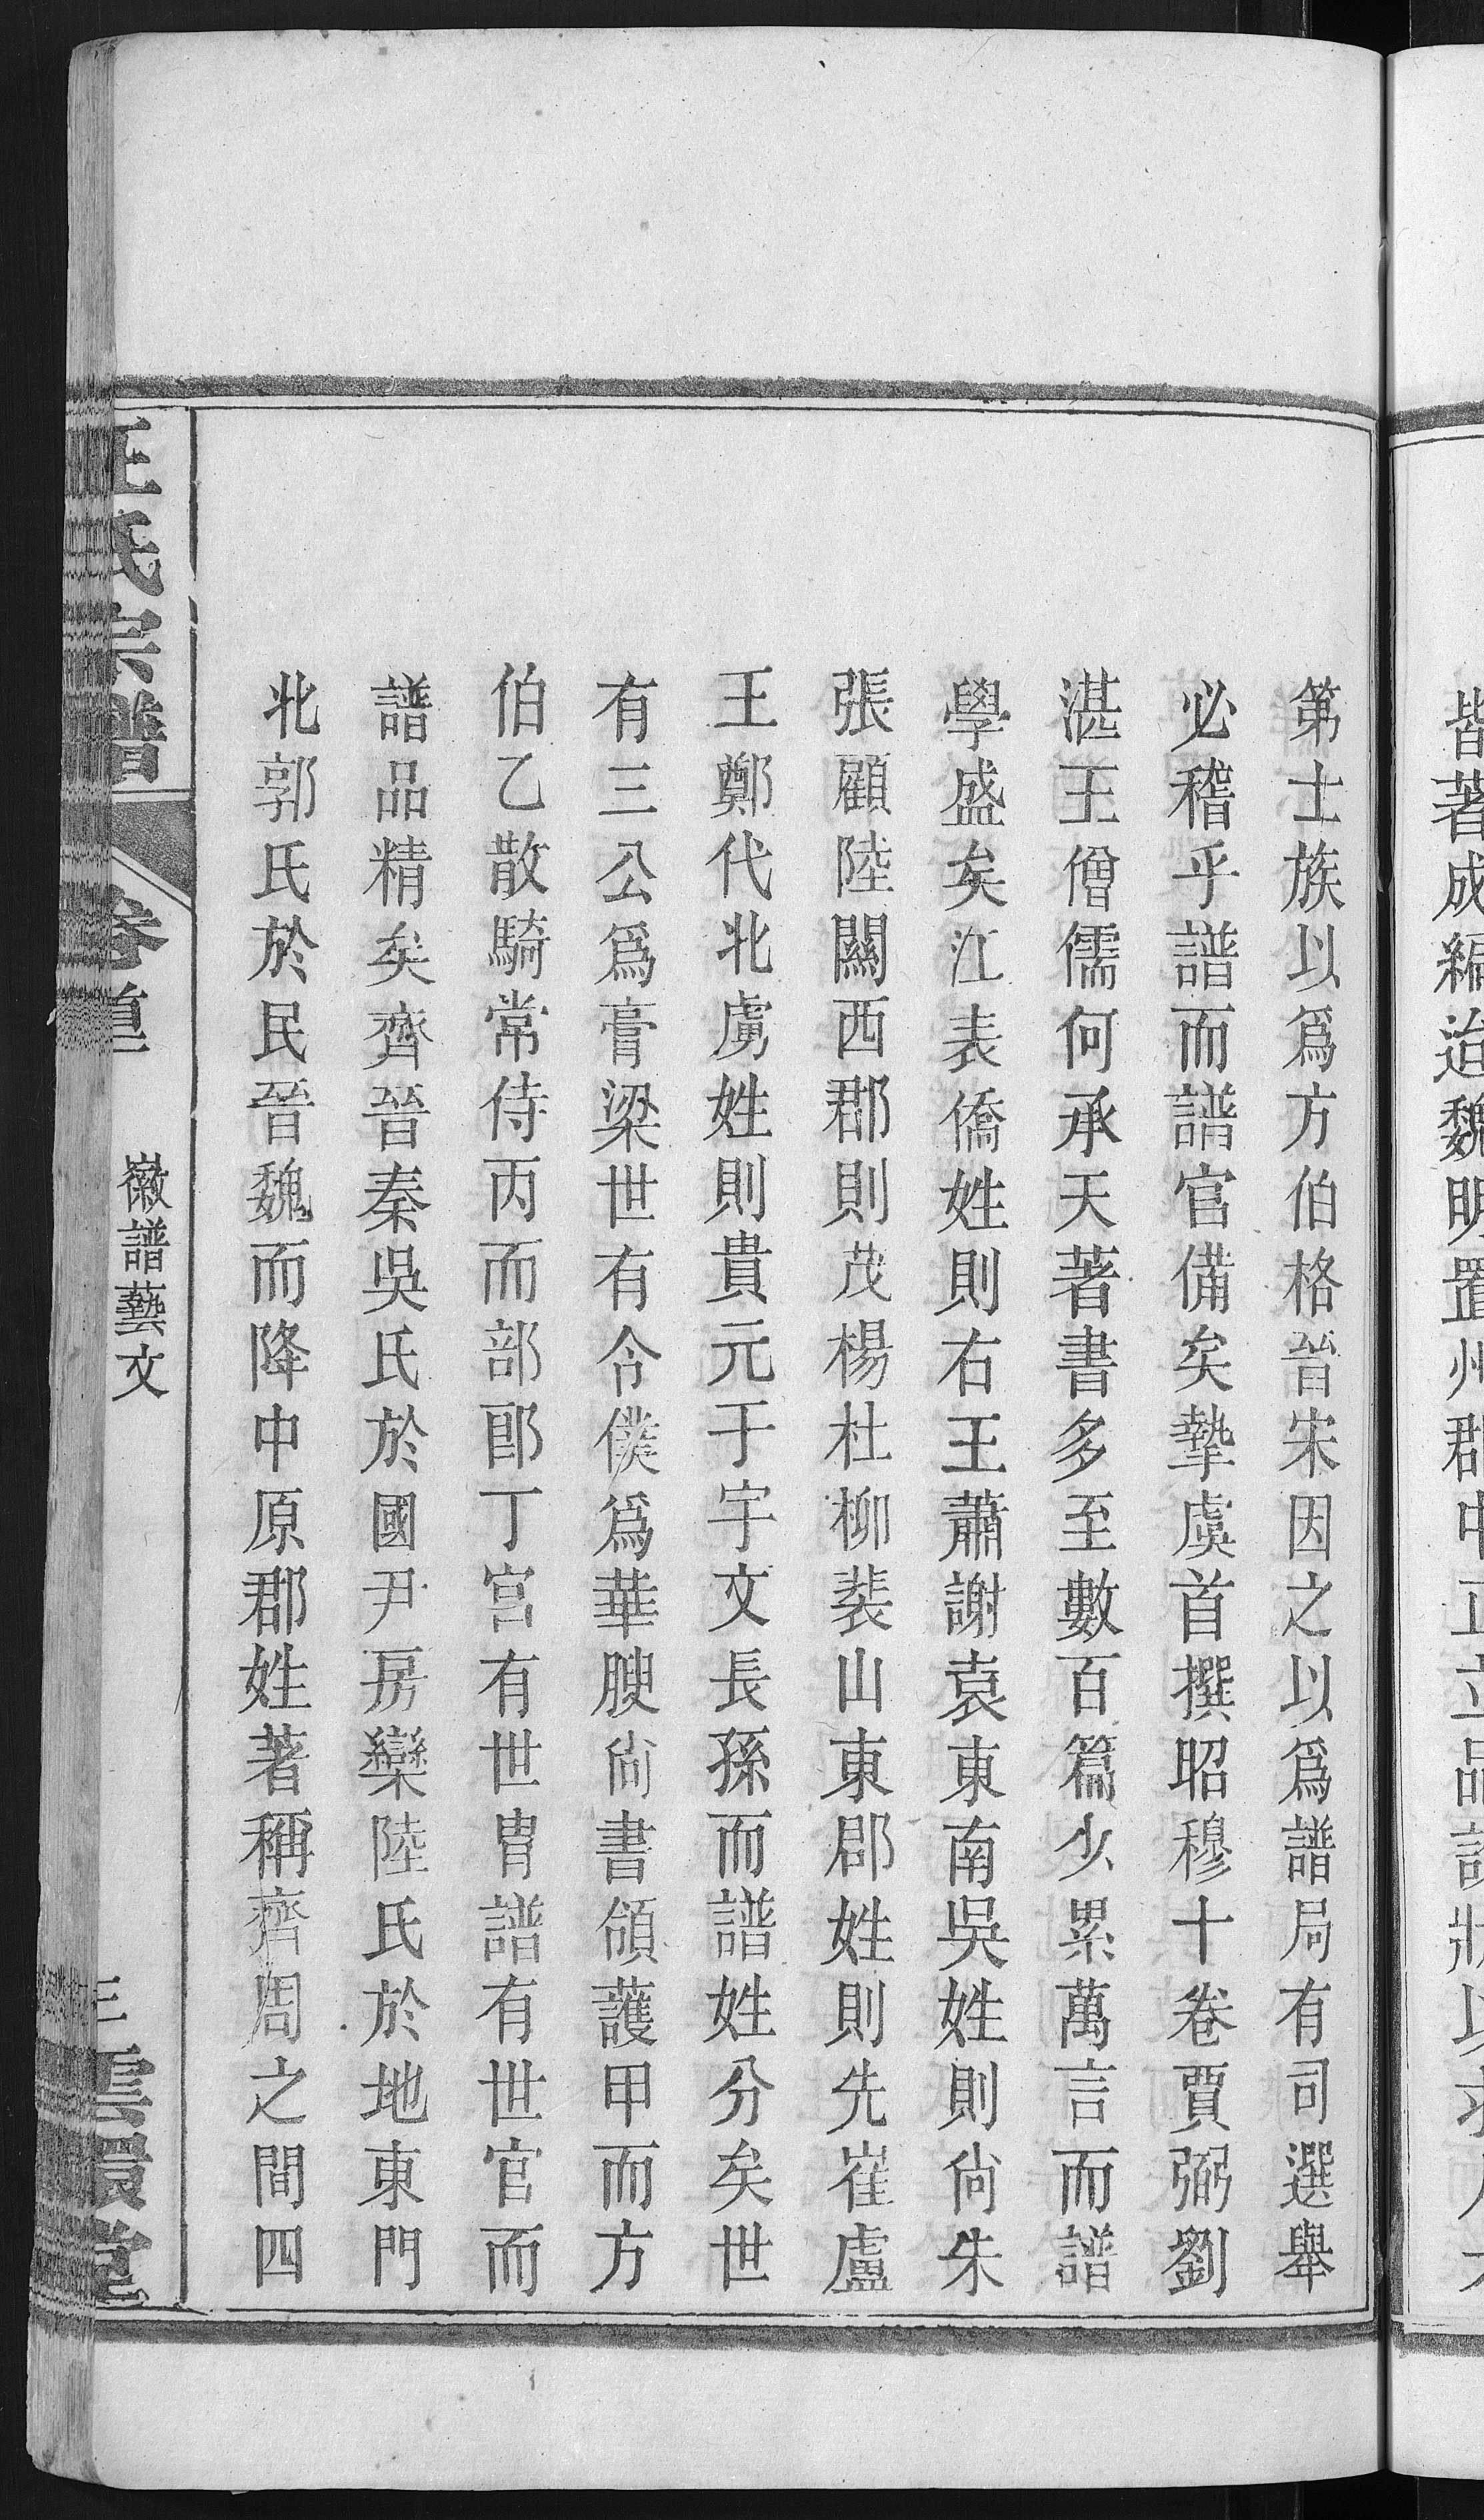 皆著成編迨魏明置州郡中正立品
第士族以爲方伯格晉宋因之以爲譜局有司選舉
必稽乎譜而譜官備矣摯虞首撰昭穆十卷賈弼劉
湛王僧儒何承天著書多至數百篇少累萬言而譜
學盛矣江表僑姓則右王蕭謝袁東南吳姓則尙朱
張顧陸關西郡則茂楊杜柳裴山東郡姓則先崔盧
王鄭代北虜姓則貴元于宇文長孫而譜姓分矣世
有三公爲膏梁世有令僕爲華腴尙書領護甲而方
伯乙散騎常侍丙而部郎丁官有世胄譜有世官而
譜品精矣齊晉秦吳氏於國尹房欒陸氏於地東門
北郭氏於民晉魏而降中原郡姓著稱齊周之間四
氏宗譜
卷首
徽譜藝文
三雲環堂